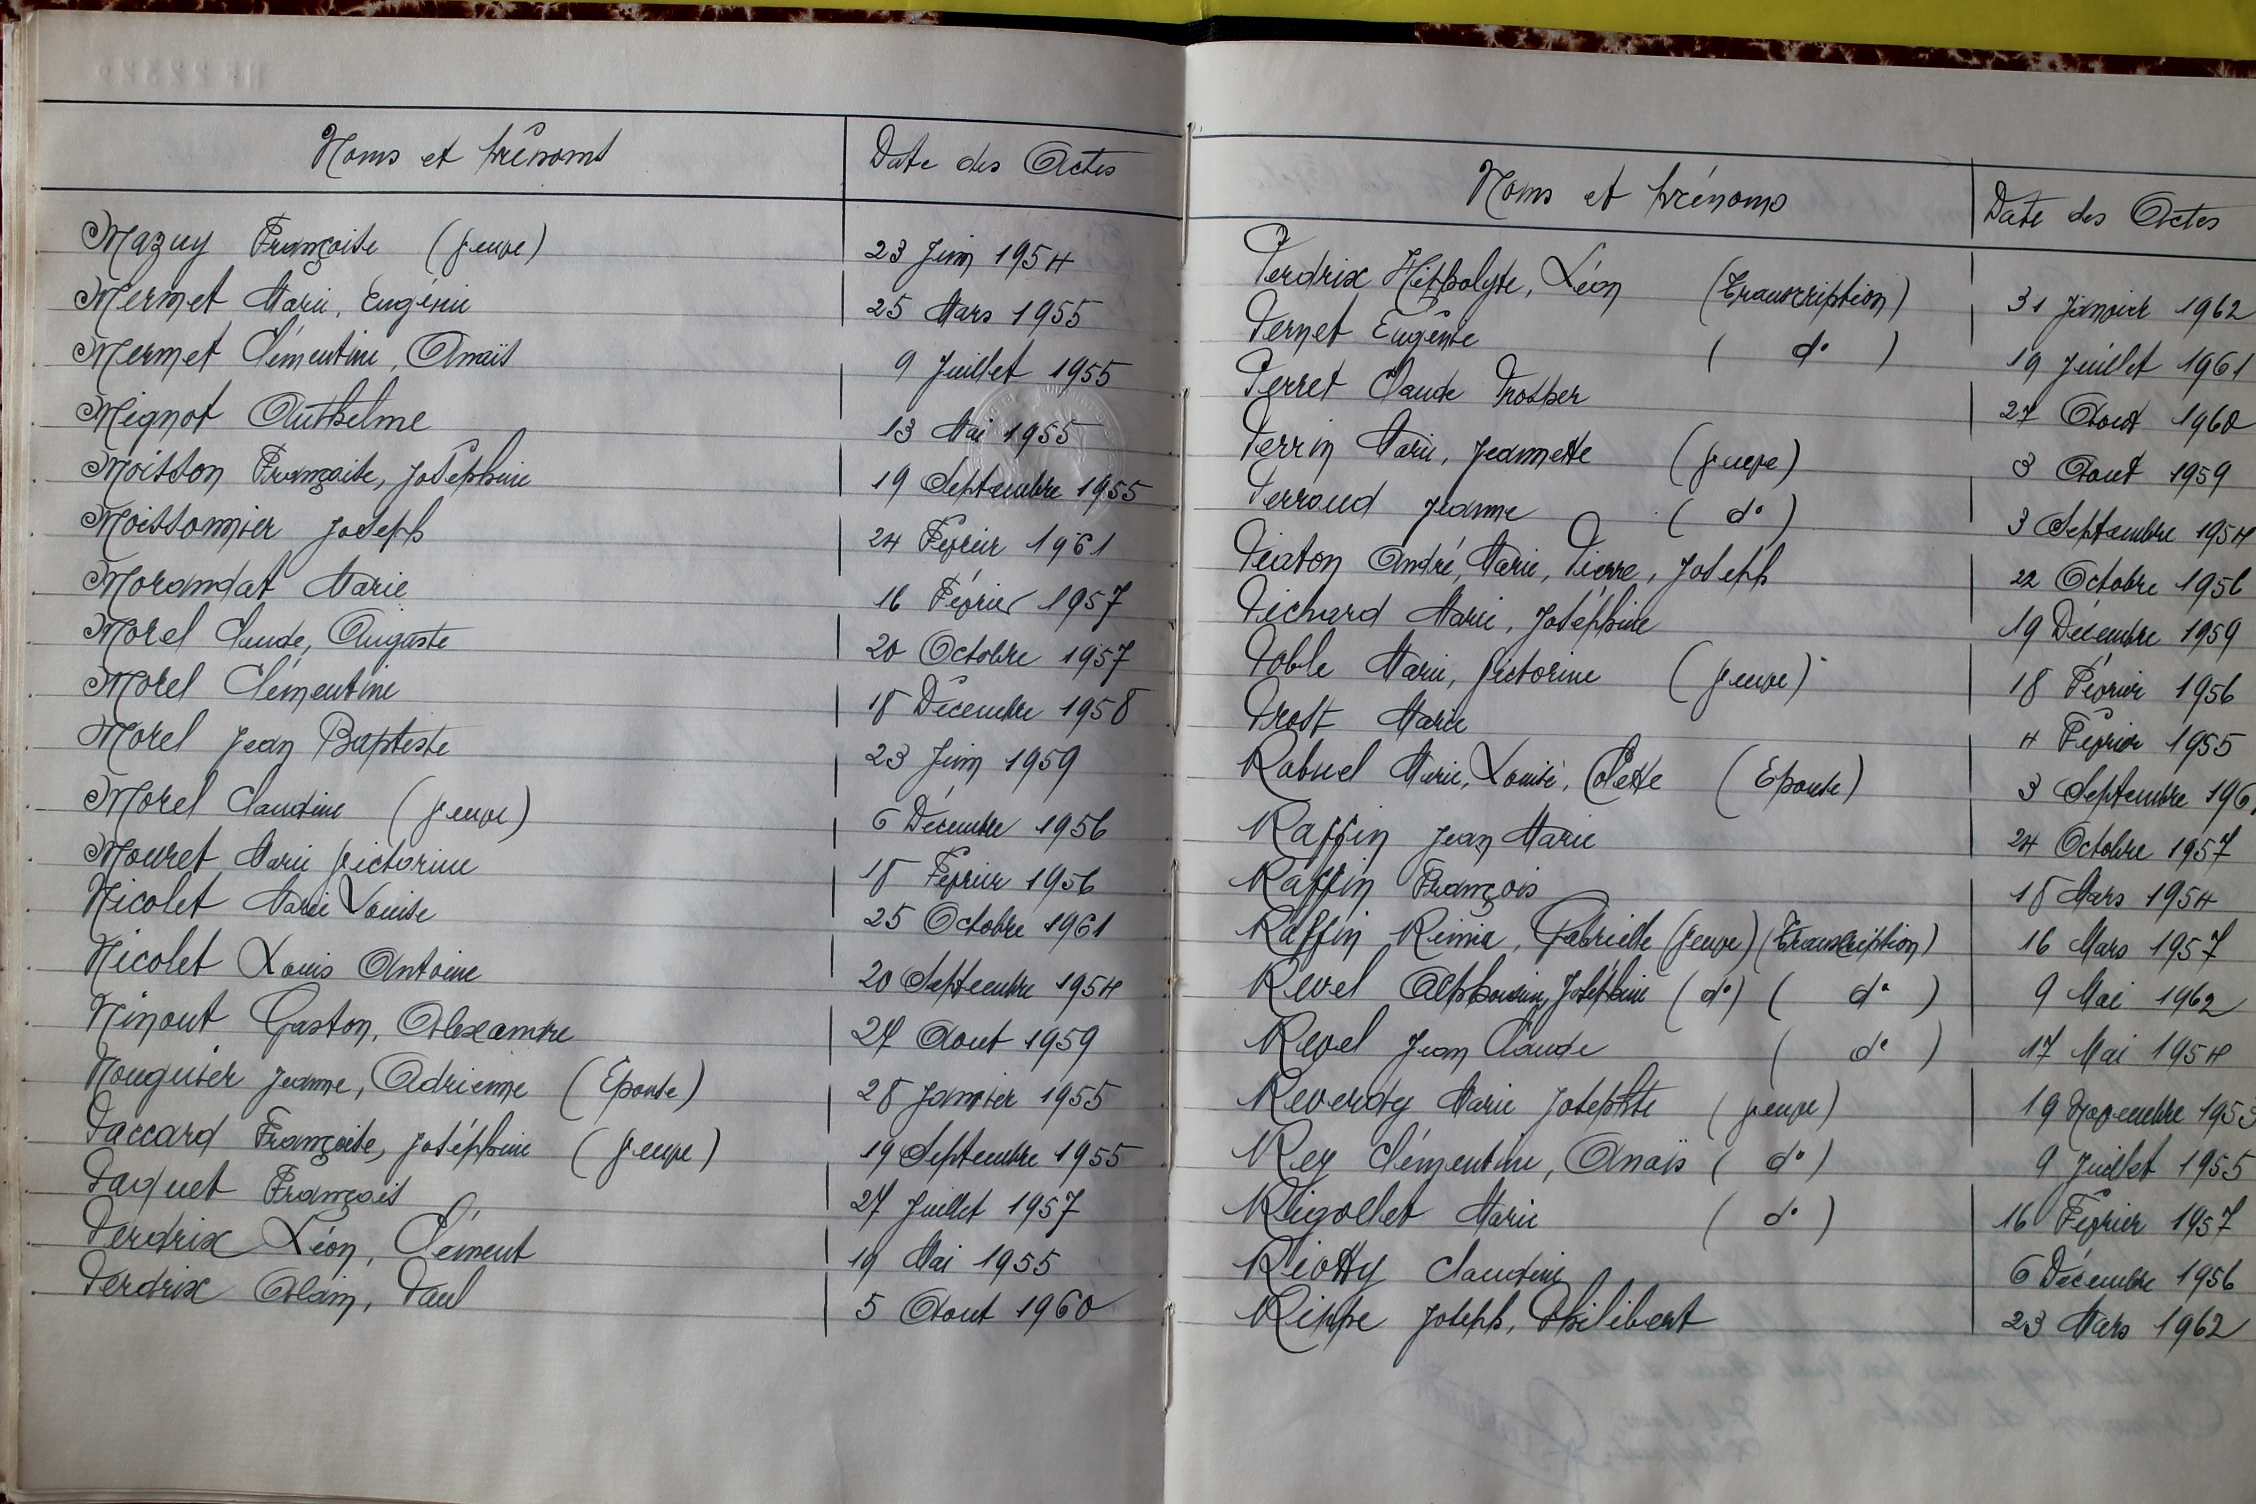 Noms et prénoms Date des Actes
Mazuy Françoise (Veuve) 23 Juin 1954
Mermet Marie, Eugénie 25 Mars 1955
Mermet Clémentine, Anaïs 9 Juillet 1955
Mignot Anthelme 13 Mai 1955
Moisson Françoise, Joséphine 19 Septembre 1955
Moissonnier Joseph 24 Février 1961
Morandat Marie 16 Février 1957
Morel Claude, Auguste 20 Octobre 1957
Morel Clémentine 18 Décembre 1958
Morel Jean Baptiste 23 Juin 1959
Morel Claudine (Veuve) 6 Décembre 1956
Mouret Marie Victorine 18 Février 1956
Nicolet Marie Louise 25 Octobre 1961
Nicolet Louis Antoine 20 Septembre 1954
Ninout Gaston, Alexandre 27 Aout 1959
Nouguier Jeanne, Adrienne (Epouse) 28 Janvier 1955
Paccard Françoise, Joséphine (Veuve) 19 Septembre 1955
Paquet François 27 Juillet 1957
Perdrix Léon, Clément 19 Mai 1955
Perdrix Alain, Paul 5 Aout 1960
Noms et prénoms Date des Actes
Perdrix Hippolyte, Léon (Transcription) 31 Janvier 1962
Pernet Eugénie ( d° ) 19 Juillet 1961
Perret Claude Prosper 27 Aout 1960
Perrin Marie, Jeannette (Veuve) 3 Aout 1959
Perroud Jeanne ( d° ) 3 Septembre 1954
Piaton André, Marie, Pierre, Joseph 22 Octobre 1956
Pichard Marie, Joséphine 19 Décembre 1959
Poble Marie, Victorine (Veuve) 18 Février 1956
Prost Marie 4 Février 1955
Rabuel Marie, Louise, Colette (Epouse) 3 Septembre 196
Raffin Jean Marie 24 Octobre 1957
Raffin François 18 Mars 1954
Raffin Rémia, Gabrielle (Veuve) (Transcription) 16 Mars 1957
Revel Alphonsine, Joséphine ( d° ) ( d° ) 9 Mai 1962
Revel Jean Claude ( d° ) 17 Mai 1954
Reverdy Marie Josephte (Veuve) 19 Novembre 1953
Rey Clémentine, Anaïs ( d° ) 9 Juillet 1955
Rigollet Marie ( d° ) 16 Février 1957
Riotty Claudine 6 Décembre 1956
Rippe Joseph, Philibert 23 Mars 1962